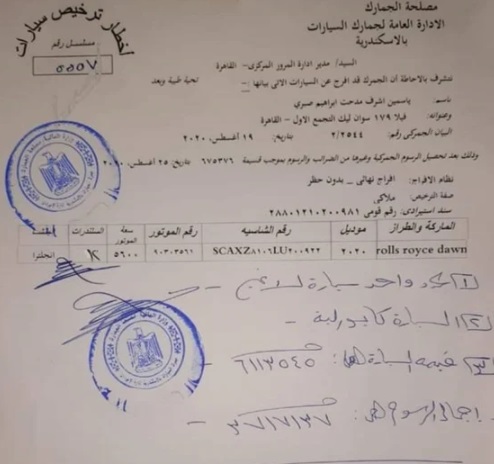 مصلحة الجمارك
الادارة العامة لجمارك السيارات
بالاسكندرية
أخطار ترخيص سيارات
مسلسل رقم
٥٥٥٧
السيد/ مدير ادارة المرور المركزى- القاهرة
تحية طيبة وبعد
نتشرف بالاحاطة أن الجمرك قد افرج عن السيارات الاتى بيانها :-
باسم: ياسمين اشرف مدحت ابراهيم صبري
وعنوانه: فيلا ١٧٩ سوان ليك التجمع الاول - القاهرة
البيان الجمركى رقم: ٢/٢٥٤٤ بتاريخ: ١٩ أغسطس، ٢٠٢٠
وذلك بعد تحصيل الرسوم الجمركية وغيرها من الضرائب والرسوم بموجب قسيمة ٦٧٥٣٧٦ بتاريخ: ٢٥ أغسطس، ٢٠٢٠
نظام الافراج: افراج نهائى _ بدون حظر
صفة الترخيص: ملاكى
سند استيرادى: رقم قومى ٢٨٨٠١٢١٠٢٠٠٩٨١
الماركة والطراز موديل رقم الشاسيه رقم الموتور سعة الموتور السلندرات
rolls royce dawn ٢٠٢٠ SCAXZ٨١٠٦LU٢٠٠٩٢٢ ٩٠٣٠٣٥٦١ ٥٦٠٠ انجلترا
٢) السيارة كابورليه -
٣) قيمة السيارة هى: ٦١١٣٥٤٥ -
اجمالى الرسوم هى: ٣٧١٧١٣٧ -